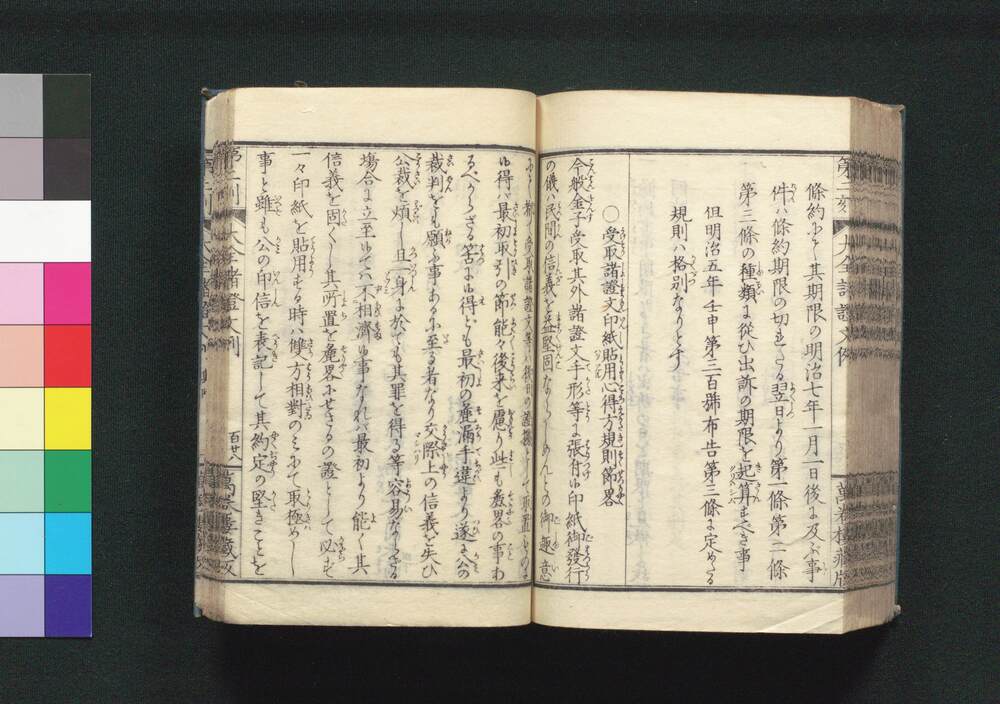 條約ニて其期限の明治七年一月一日後に及ぶ事
件ハ條約期限の切れたる翌日より第一條第二條
第三條の種類に從ひ出訴の期限を起算すべき事
但明治五年壬申第三百號布告第三條に定めたる
規則ハ格別なりとす
○受取諸證文印紙貼用心得方規則節畧
今般金子受取其外諸證文手形等に張付候印紙御發行
の儀ハ民間の信義を益堅固ならしめんとの御趣意
にて都て受取諸證文等ハ後日の證據として取置ものに
候得バ最初取引の節能々後来を慮り些も麁畧の事わ
るべからざる筈に候得ども最初の麁漏手違より遂に公の
裁判をも願ふ事あるに至る者なり交際上の信義を失ひ
公裁を煩し且一身に於ても其罪を得る等容易ならざる
場合に立至候てハ不相濟候事なれバ最初より能く其
信義を固くし其所置を麁畧にせざるの證として必ず
一々印紙を貼用する時ハ雙方相對のミにて取極めし
事と雖も公の印信を表記して其約定の堅きことを
大全諸證文例
萬笈樓藏版
百廿八